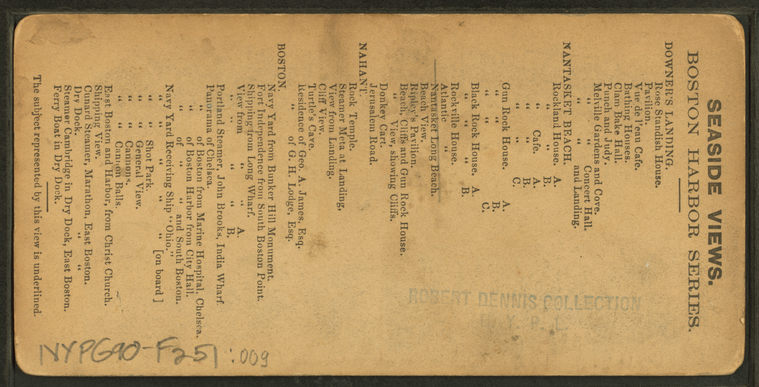 SEASIDE VIEWS.
BOSTON HARBOR SERIES.
DOWNER'S LANDING.
Rose Standish House.
Pavilion.
Vue de l'eau Cafe.
Bathing Houses.
Clam Bake Hall.
Punch and Judy.
Melville Gardens and Cove.
" " Concert Hall.
" " and Landing.
NANTASKET BEACH.
Rockland House. A.
" " B.
" Cafe. A.
" " B.
" " C.
Gun Rock House. A.
" " " B.
" " " C.
Black Rock House. A.
" " " B.
Rockville House.
Atlantic "
Nantasket Long Beach.
Beach View.
Ripley's Pavilion.
Beach, Cliffs and Gun Rock House.
" View, showing Cliffs.
Donkey Cart.
Jerusalem Road.
NAHANT.
Rock Temple.
Steamer Meta at Landing.
View from Landing.
Cliff View.
Turtle's Cave.
Residence of Geo. A. James, Esq.
" of G. H. Lodge, Esq.
BOSTON.
Navy Yard from Bunker Hill Monument.
Fort Independence from South Boston Point.
Shipping from Long Wharf.
View from " " A.
" " " " B.
Portland Steamer, John Brooks, India Wharf.
Panorama of Chelsea.
" " Boston from Marine Hospital, Chelsea.
" of Boston Harbor from City Hall.
" of " " and South Boston.
Navy Yard Receiving Ship "Ohio."
" " " " " [on board]
" " Shot Park.
" " General View.
" " Cannon.
" " Cannon Balls.
East Boston and Harbor, from Christ Church.
Shipping View.
Cunard Steamer, Marathon, East Boston.
Dry Dock, " "
Steamer Cambridge in Dry Dock, East Boston.
Ferry Boat in Dry Dock.
The subject represented by this view is underlined.
ROBERT DENNIS COLLECTION
N.Y.P.L.
NYPG90-F251:009